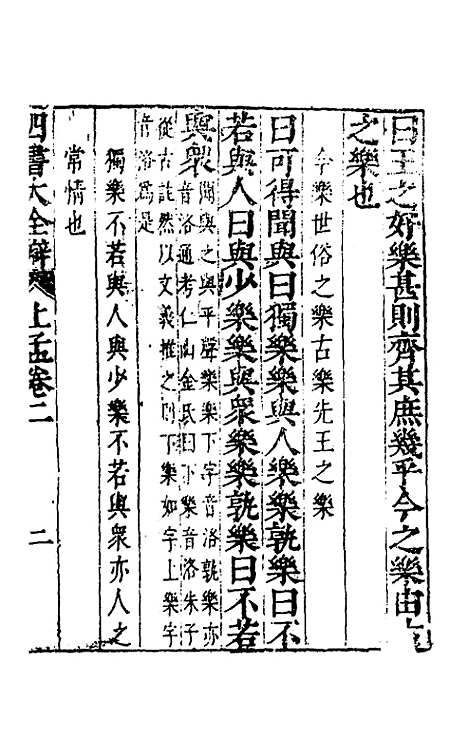 曰王之好樂甚則齊其庶幾乎今之樂由古
之樂也
今樂世俗之樂古樂先王之樂
曰可得聞與曰獨樂樂與人樂樂孰樂曰不
若與人曰與少樂樂與衆樂樂孰樂曰不若
與衆
聞與之與平聲樂樂下字音洛孰樂亦
音洛通考仁山金氏曰下樂音洛朱子
從古註然以文義推之則下樂如字上樂字
音洛爲是
獨樂不若與人與少樂不若與衆亦人之
常情也
四書大全辯 上孟卷二 二